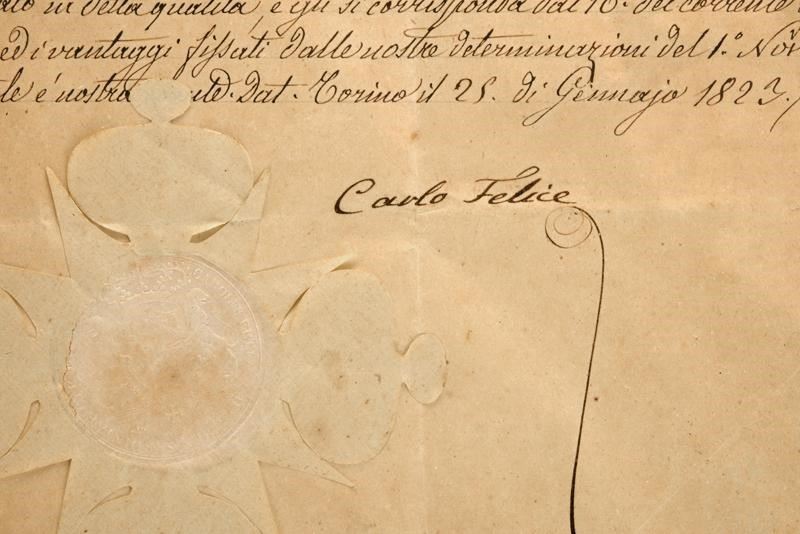 in detta qualità, e gli si corrisponda dal 16. del corrente
ed i vantaggi fissati dalle nostre determinazioni del 1.° Nov
le è nostra Dat. Torino il 25. di Gennajo 1823.
Carlo Felice